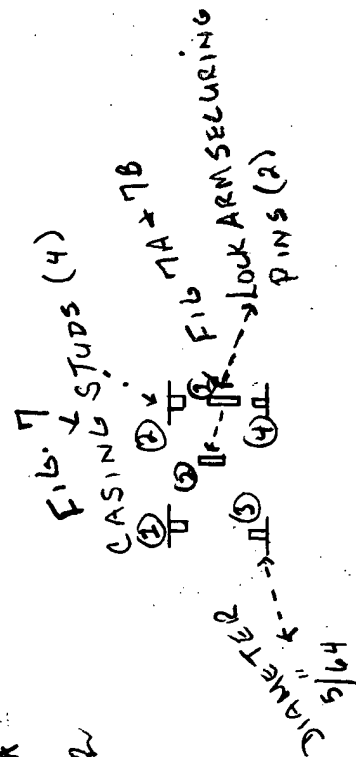 FIG. 7
CASING STUDS (4)
FIG 7A & 7B
LOCK ARM SECURING
PINS (2)
①
②
②
③
④
DIAMETER
5/64"